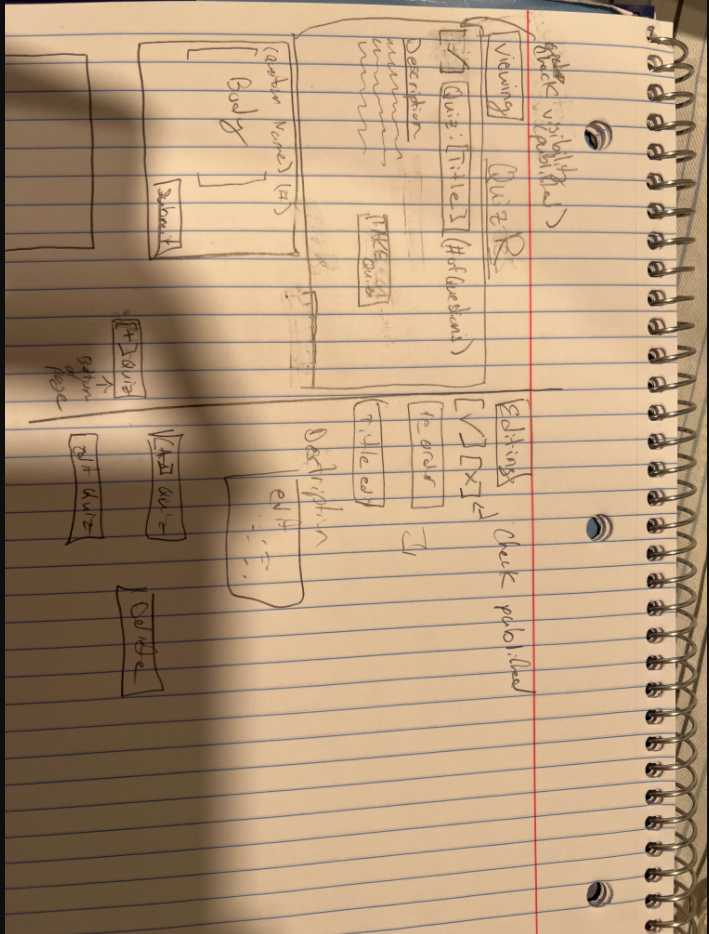 check visibility
(published)
Viewing
Quiz R
[✓] [Quiz: [Title] (# of Questions)
Description
TAKE
Quiz
(custom Names) (#)
[ Body ]
Submit
[+] Quiz
↑
page
Editing
[✓] [X] Check published
Title edit
Description
edit
[+] Quiz
edit Quiz
Delete